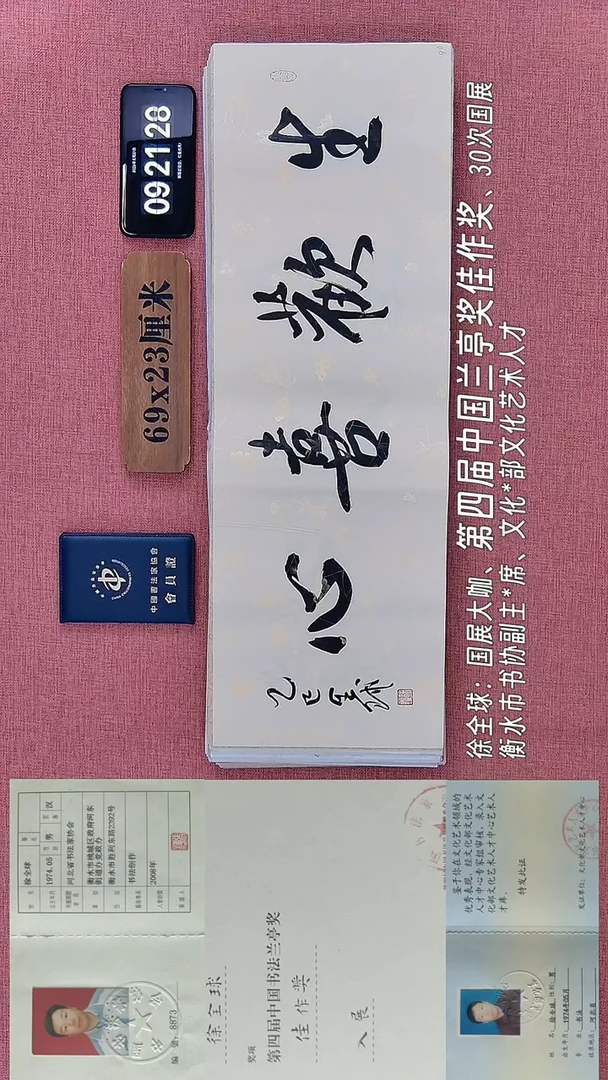 09 21 28
69x23厘米
中國書法家協會
會員證
生歡喜心
乙巳 全球
徐全球：国展大咖、第四届中国兰亭奖佳作奖、30次国展
衡水市书协副主*席、文化*部文化艺术人才
徐全球 男 汉
1974.05
河北省书法家协会
衡水市桃城区政府河东
街道办党政办
衡水市胜利东路2202号
书法创作
2008年
编号：8873
徐全球
奖项
第四届中国书法兰亭奖
佳作奖
入展
鉴于你在文化艺术领域的
优秀表现，经文化部文化艺术
人才中心专家组审核，录入文
化部文化艺术人才中心艺术人
才库。
特发此证
发证单位：文化部文化艺术人才中心
姓名：徐全球 性别：男
出生年月：1974年05月
专业：书法